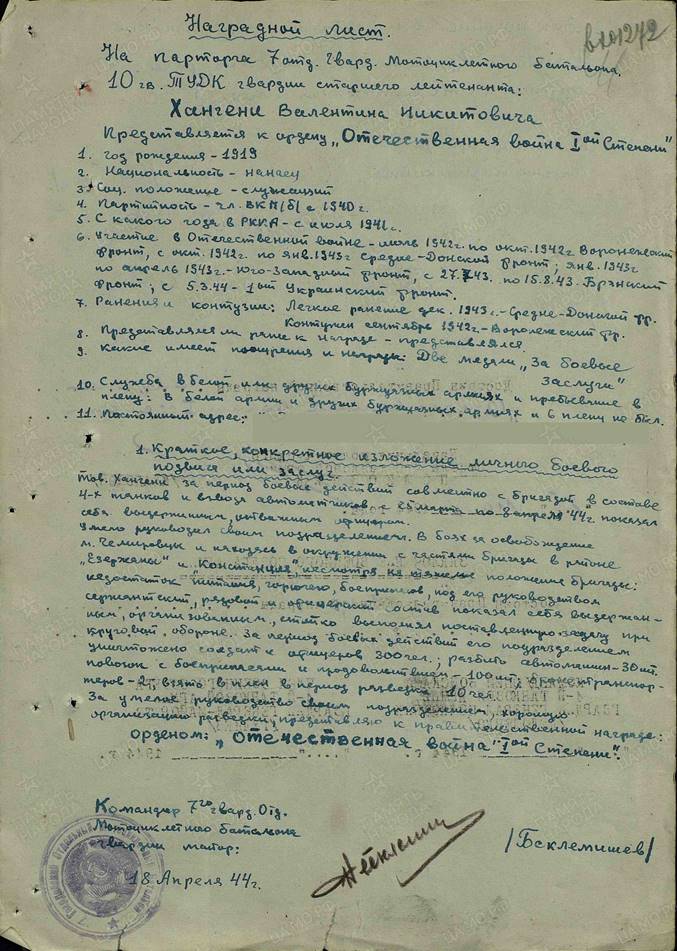 Наградной лист.
На парторга 7 отд. Гвард. Мотоциклетного батальона
10 гв. ТУДК гвардии старшего лейтенанта:
Хангени Валентина Никитовича
Представляется к ордену „Отечественная война Iой Степени"
1. год рождения - 1919
2. Национальность - нанаец
3. Соц. положение - служащий
4. Партийность - чл. ВКП(б) с 1940г.
5. С какого года в РККА - с июля 1941г.
6. Участие в Отечественной войне - июль 1942г. по окт. 1942г. Воронежский
фронт, с окт. 1942г. по янв. 1943г Средне-Донской фронт; янв. 1943г
по апрель 1943г. - Юго-Западный фронт, с 27.7.43. по 15.8.43. Брянский
фронт; с 5.3.44 - 1ый Украинский фронт.
7. Ранения и контузии: Легкое ранение дек. 1943г. - Средне-Донский фр.
Контужен сентябрь 1942г. - Воронежский фр.
8. Представлялся ли ранее к награде - представлялся
9. Какие имеет поощрения и награды: Две медали „За боевые
заслуги"
10. Служба в белой или других буржуазных армиях и пребывание в
плену: В белой армии и других буржуазных армиях и в плену не был.
11. Постоянный адрес:
1. Краткое, конкретное изложение личного боевого
подвига или заслуг.
Тов. Хангени за период боевых действий совместно с бригадой в составе
4-х танков и взвода автоматчиков с марта по апреля 44г. показал
себя выдержанным, отважным офицером.
Умело руководил своим подразделением. В боях за освобождение
м. Чемировцы и находясь в окружении с частями бригады в районе
„Езержаны" и „Констанция", несмотря на тяжелое положение бригады:
недостаток питания, горючего, боеприпасов, под его руководством
сержантский, рядовой и офицерский состав показал себя выдержан-
ным, организованным, стойко выполнял поставленную задачу при
круговой обороне. За период боевых действий его подразделением
уничтожено солдат и офицеров 300 чел.; разбито автомашин - 30 шт.
повозок с боеприпасами и продовольствием - 100 шт; бронетранспор-
теров - 2; взято в плен в период разведки 10 чел.
За умелое руководство своим подразделением, хорошую
организацию разведки, представляю к правительственной награде:
орденом: „Отечественная война" Iой Степени".
Командир 7го гвард. Отд.
Мотоциклетного батальона
гвардии майор: /Беклемишев/
18 Апреля 44г.